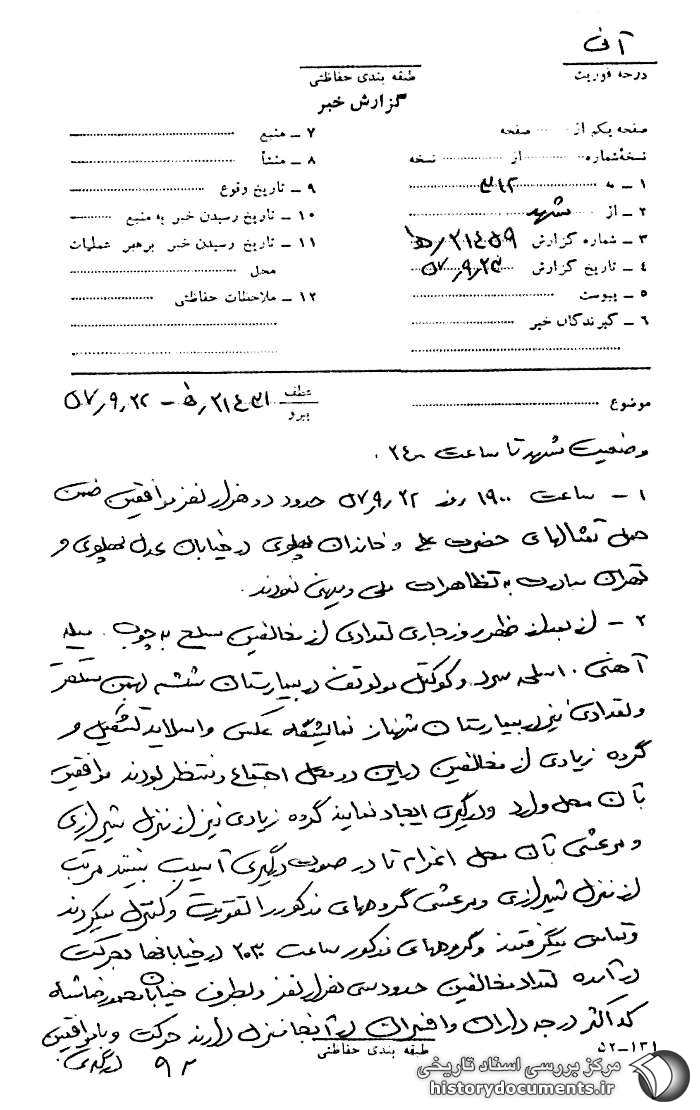 آنی
درجه فوریت
طبقه بندی حفاظتی
گزارش خبر
صفحه یکم از صفحه
نسخهٔ شماره از نسخه
۱ - به ۳۱۲
۲ - از مشهد
۳ - شماره گزارش ۲۱۴۵۹/ﻫ
۴ - تاریخ گزارش ۵۷/۹/۲۳
۵ - پیوست
۶ - گیرندگان خبر
۷ - منبع
۸ - منشأ
۹ - تاریخ وقوع
۱۰ - تاریخ رسیدن خبر به منبع
۱۱ - تاریخ رسیدن خبر برهبر عملیات
محل
۱۲ - ملاحظات حفاظتی
موضوع
عطف
پیرو
۲۱۴۳۱/ﻫ - ۵۷/۹/۲۲
وضعیت مشهد تا ساعت ۲۴۰۰
۱ - ساعت ۱۹۰۰ روز ۵۷/۹/۲۲ حدود دو هزار نفر موافقین ضمن
حمل تمثالهای حضرت علی و خاندان پهلوی در خیابان عدل پهلوی و
تهران مبادرت به تظاهرات ملی و میهنی نمودند.
۲ - از بعد از ظهر روز جاری تعدادی از مخالفین مسلح به چوب، میله
آهنی، اسلحه سرد و کوکتل مولوتف در بیمارستان ششم بهمن مستقر
و تعدادی نیز در بیمارستان شهناز نمایشگاه عکس و اسلاید تشکیل و
گروه زیادی از مخالفین در این دو محل اجتماع و منتظر بودند موافقین
بآن محل وارد و درگیری ایجاد نمایند گروه زیادی نیز از منزل شیرازی
و مرعشی بآن محل اعزام تا در صورت درگیری آسیب نبینند مرتب
از منزل شیرازی و مرعشی گروههای مذکور را تقویت و کنترل میکردند
و تماس میگرفتند و گروههای مذکور ساعت ۲۰۳۰ در خیابانها بحرکت
درآمده تعداد مخالفین حدود سی هزار نفر و بطرف خیابان محمدرضاشاه
که اکثر درجه داران و افسران در آنجا منزل دارند حرکت و با موافقین
درگیری
طبقه بندی حفاظتی
۵۲-۱۳۱
مرکز بررسی اسناد تاریخی
historydocuments.ir